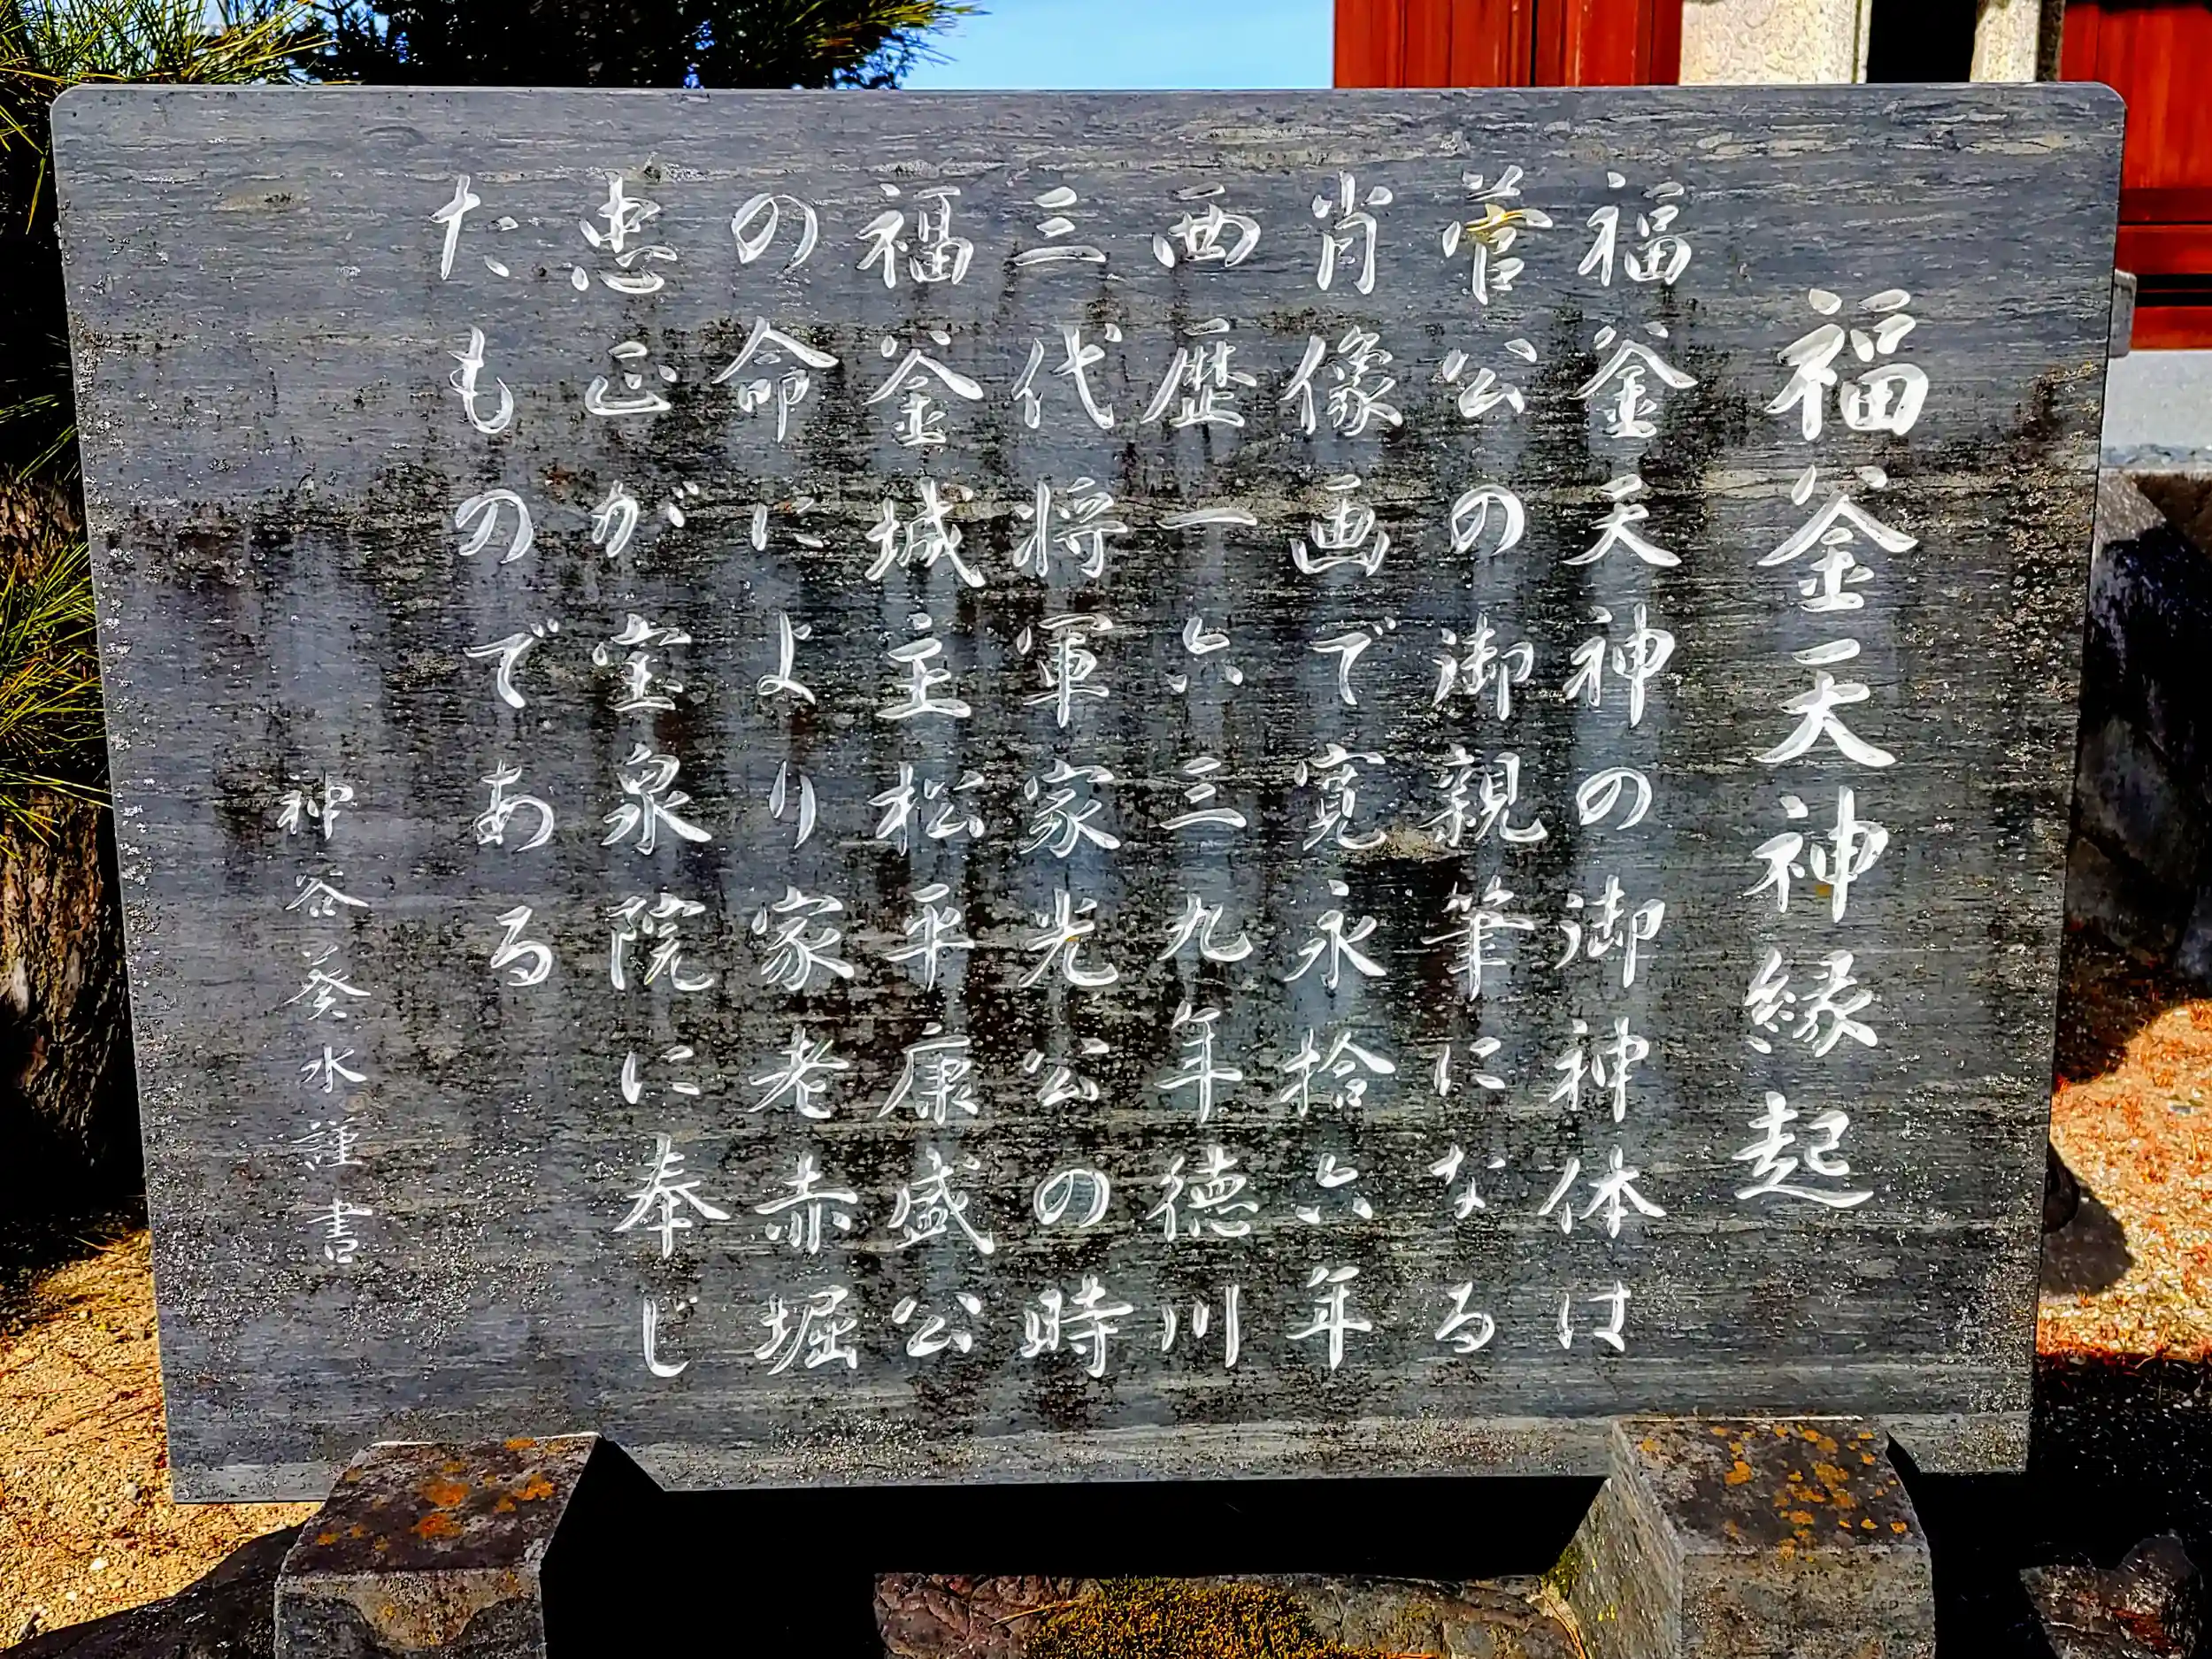 福釜天神縁起
福釜天神の御神体は
菅公の御親筆になる
肖像画で寛永拾六年
西歴一六三九年徳川
三代将軍家光公の時
福釜城主松平康盛公
の命により家老赤堀
忠正が宝泉院に奉じ
たものである
神谷葵水謹書